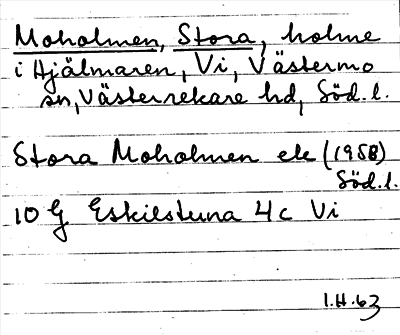 Moholmen, Stora, holme
i Hjälmaren, Vi, Västermo
sn, Västerrekare hd, Söd.l.
Stora Moholmen ek (1958)
Söd.l.
10 G Eskilstuna 4c Vi
I.H.63